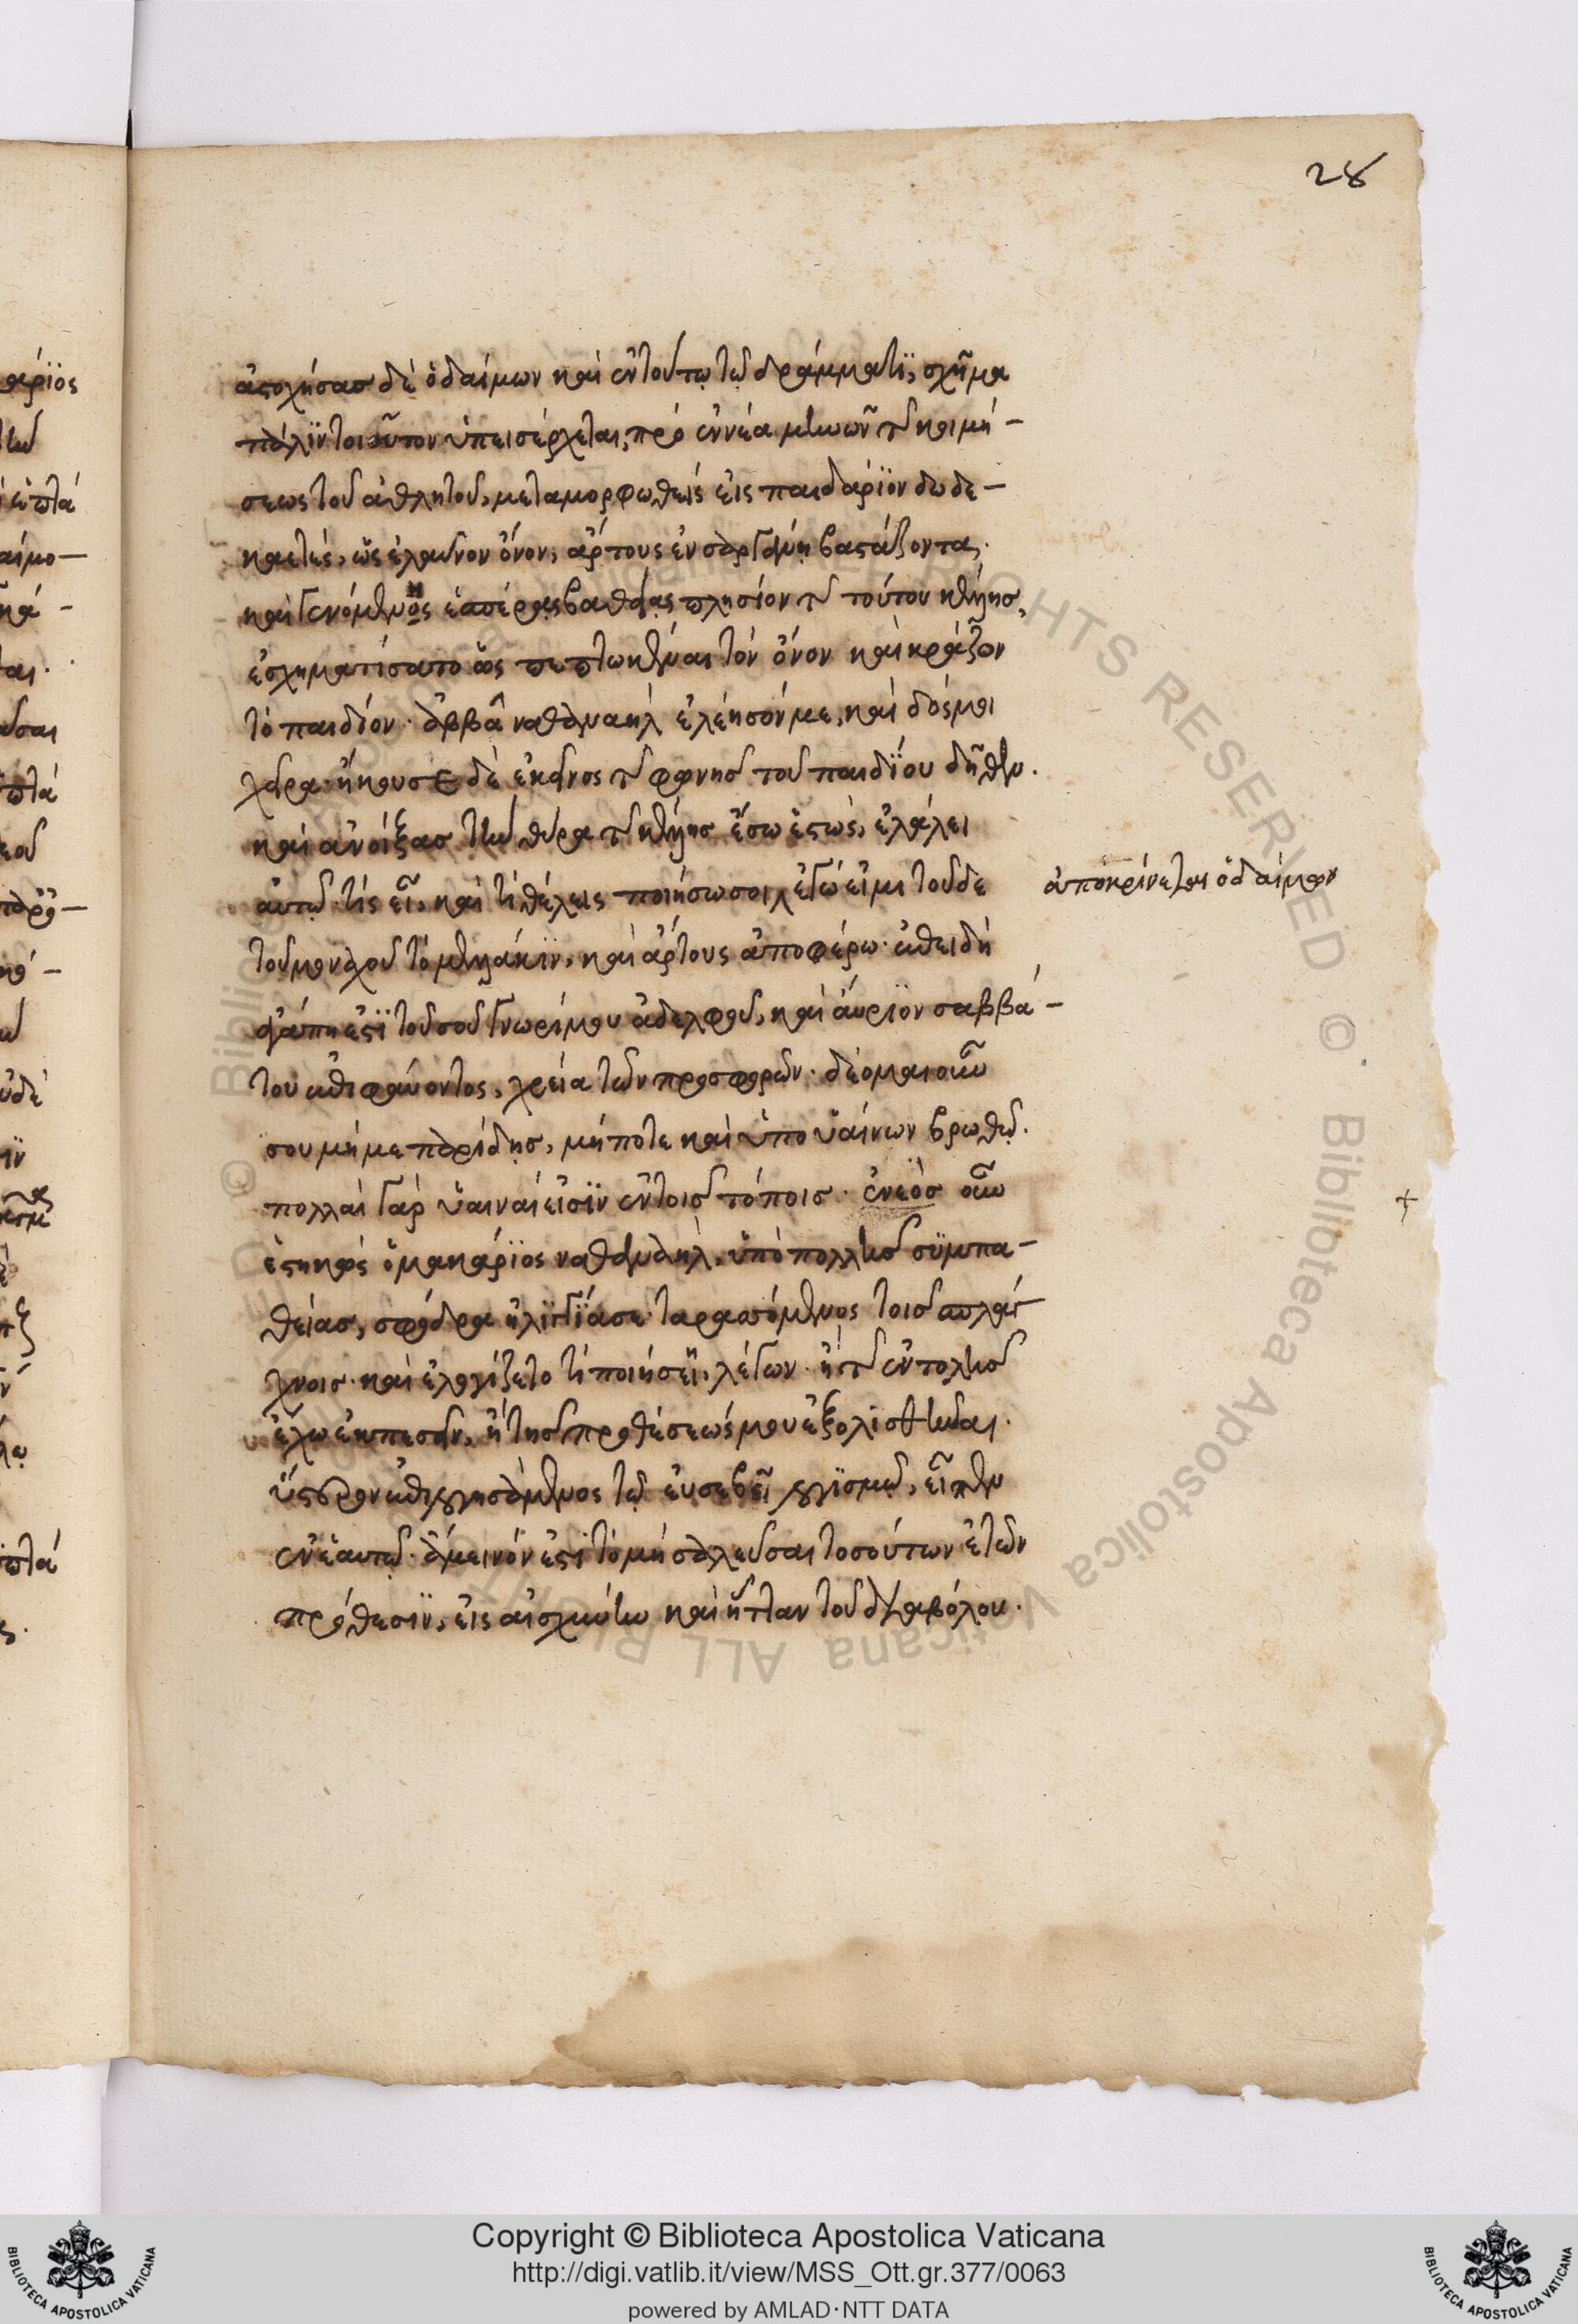 28
ἀστοχήσας δὲ ὁ δαίμων καὶ ἐν τούτω τῶ δράμματϊ, σχῆμα
πάλϊν τοιοῦτον ὑπεισέρχεται, πρὸ ἐννέα μηνῶν τῆς κοιμή-
σεως τοῦ ἀθλητοῦ, μεταμορφωθεὶς εἰς παιδάρϊον δωδε-
καετὲς, ὡς ἐλαῦνον ὄνον, ἄρτους ἐν σαργάνη βαστάζοντα,
καὶ γενόμενος ἑσπέρας βαθείας πλησίον τῆς τούτου κέλλης,
ἐσχηματίσατο ὡς πεπτωκέναι τὸν ὄνον καὶ κράζον
τὸ παιδίον· ἀββᾶ ναθαναὴλ ἐλέησόν με, καὶ δός μοι
χεῖρα· ἤκουσε δὲ ἐκεῖνος τῆς φωνῆς τοῦ παιδΐου δῆθεν.
καὶ ἀνοίξας τὴν θύρα τῆς κέλλης ἔσω ἑστὼς, ἐλάλει
αὐτῶ· τίς εἶ, καὶ τί θέλεις ποιήσω σοι· ἐγώ εἰμι τοῦδε
ἀποκρίνεται ὁ δαίμων
τοῦ μοναχοῦ τὸ μειράκϊν, καὶ ἄρτους ἀποφέρω· ἐπειδὴ
ἀγάπη ἐστϊ τοῦ σοῦ γνωρίμου ἀδελφοῦ, καὶ αὔριον σαββά-
του ἐπιφαύοντος, χρεία τῶν προσφορῶν· δέομαι οὖν
σου μή με παρίδης, μήποτε καὶ ὑπὸ ὑαίνων βρωθῶ.
πολλαὶ γὰρ ὕαιναί εἰσϊν ἐν τοῖς τόποις· ἐνεὸς οὖν
ἑστηκὼς ὁ μακάρϊος ναθαναὴλ, ὑπὸ πολλῆς συμπα-
θείας, σφόδρα ἠλϊγγΐασε ταρασσόμενος τοῖς σπλάγ
χνοις· καὶ ἐλογίζετο τί ποιήσεϊ, λέγων· ἢ τῆς ἐντολῆς
ἔχω ἐκπεσεῖν, ἢ τῆς προθέσεώς μου ἐξολισθῆναι.
ὕστερον ἐπιλογησάμενος τῶ εὐσεβεῖ λογϊσμῶ, εἶπεν
ἐν ἑαυτῶ· ἄμεινόν ἐστϊ τὸ μὴ σαλεῦσαι τοσούτων ἐτῶν
πρόθεσϊν, εἰς αἰσχύνην καὶ ἧτταν τοῦ διαβόλου.
Copyright © Biblioteca Apostolica Vaticana
http://digi.vatlib.it/view/MSS_Ott.gr.377/0063
powered by AMLAD·NTT DATA
BIBLIOTECA APOSTOLICA VATICANA
BIBLIOTECA APOSTOLICA VATICANA